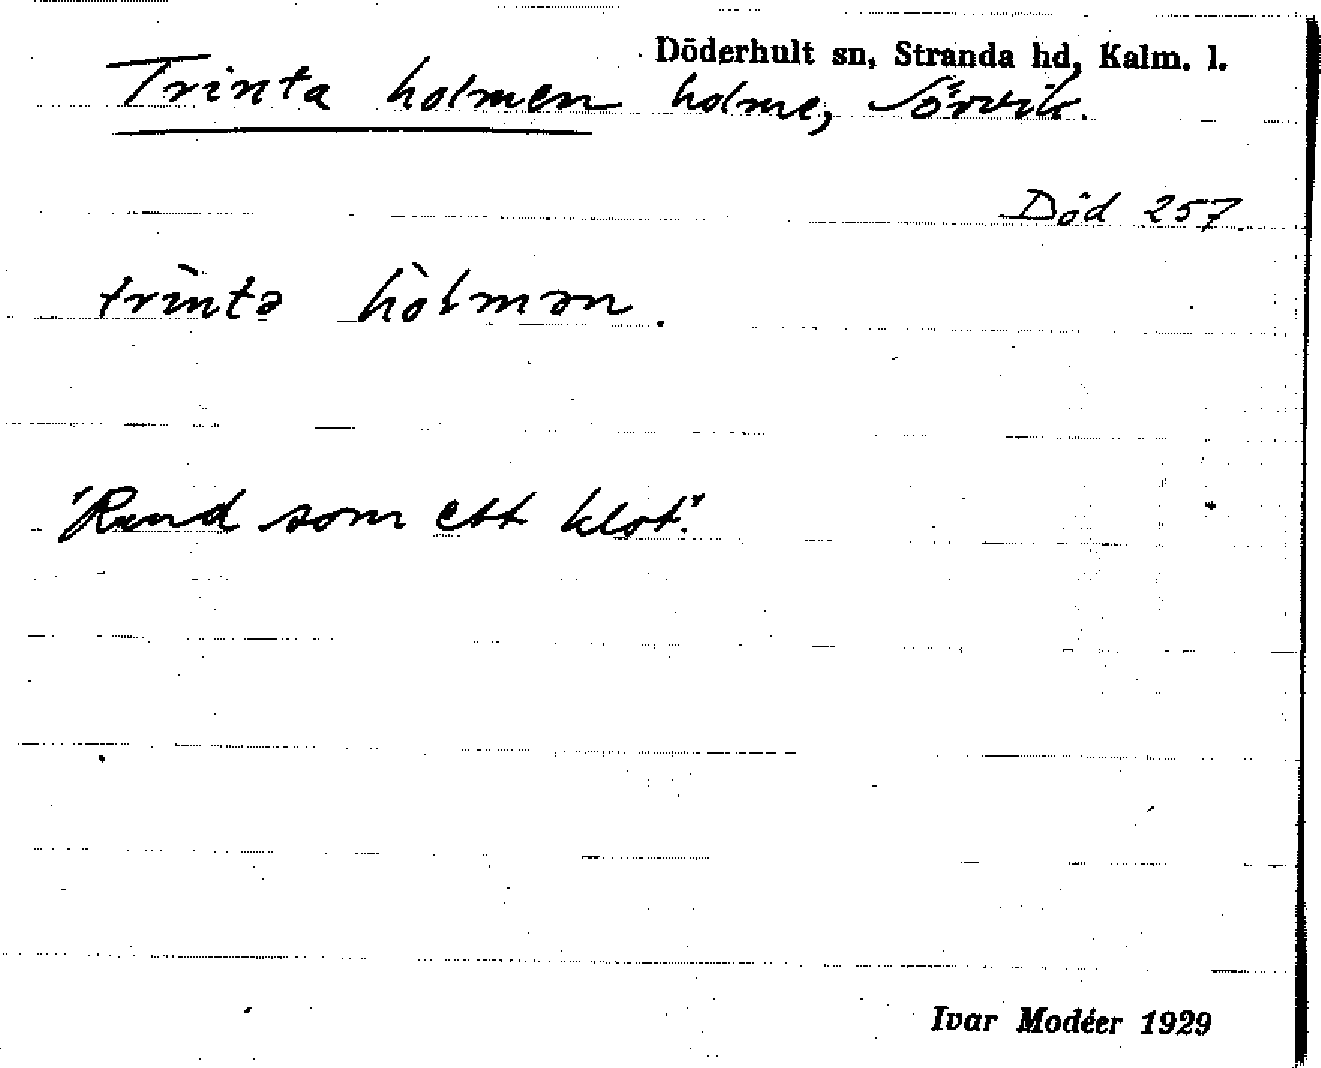 Döderhult sn, Stranda hd, Kalm. l.
Trinta holmen holme, Sörvik.
Död 257
trìntə hòlmən.
"Rund som ett klot."
Ivar Modéer 1929